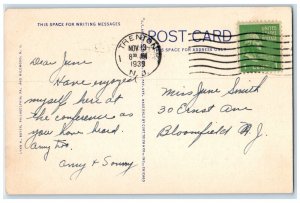 THIS SPACE FOR WRITING MESSAGES
POST CARD
THIS SPACE FOR ADDRESS ONLY
TRENTON
1
NOV 13
8 30 AM
1939
N. J.
Dear June
Have enjoyed
myself here at
the conference as
you have heard.
Amy too.
Amy & Sonny
Miss June Smith
30 Ernst Ave
Bloomfield N.J.